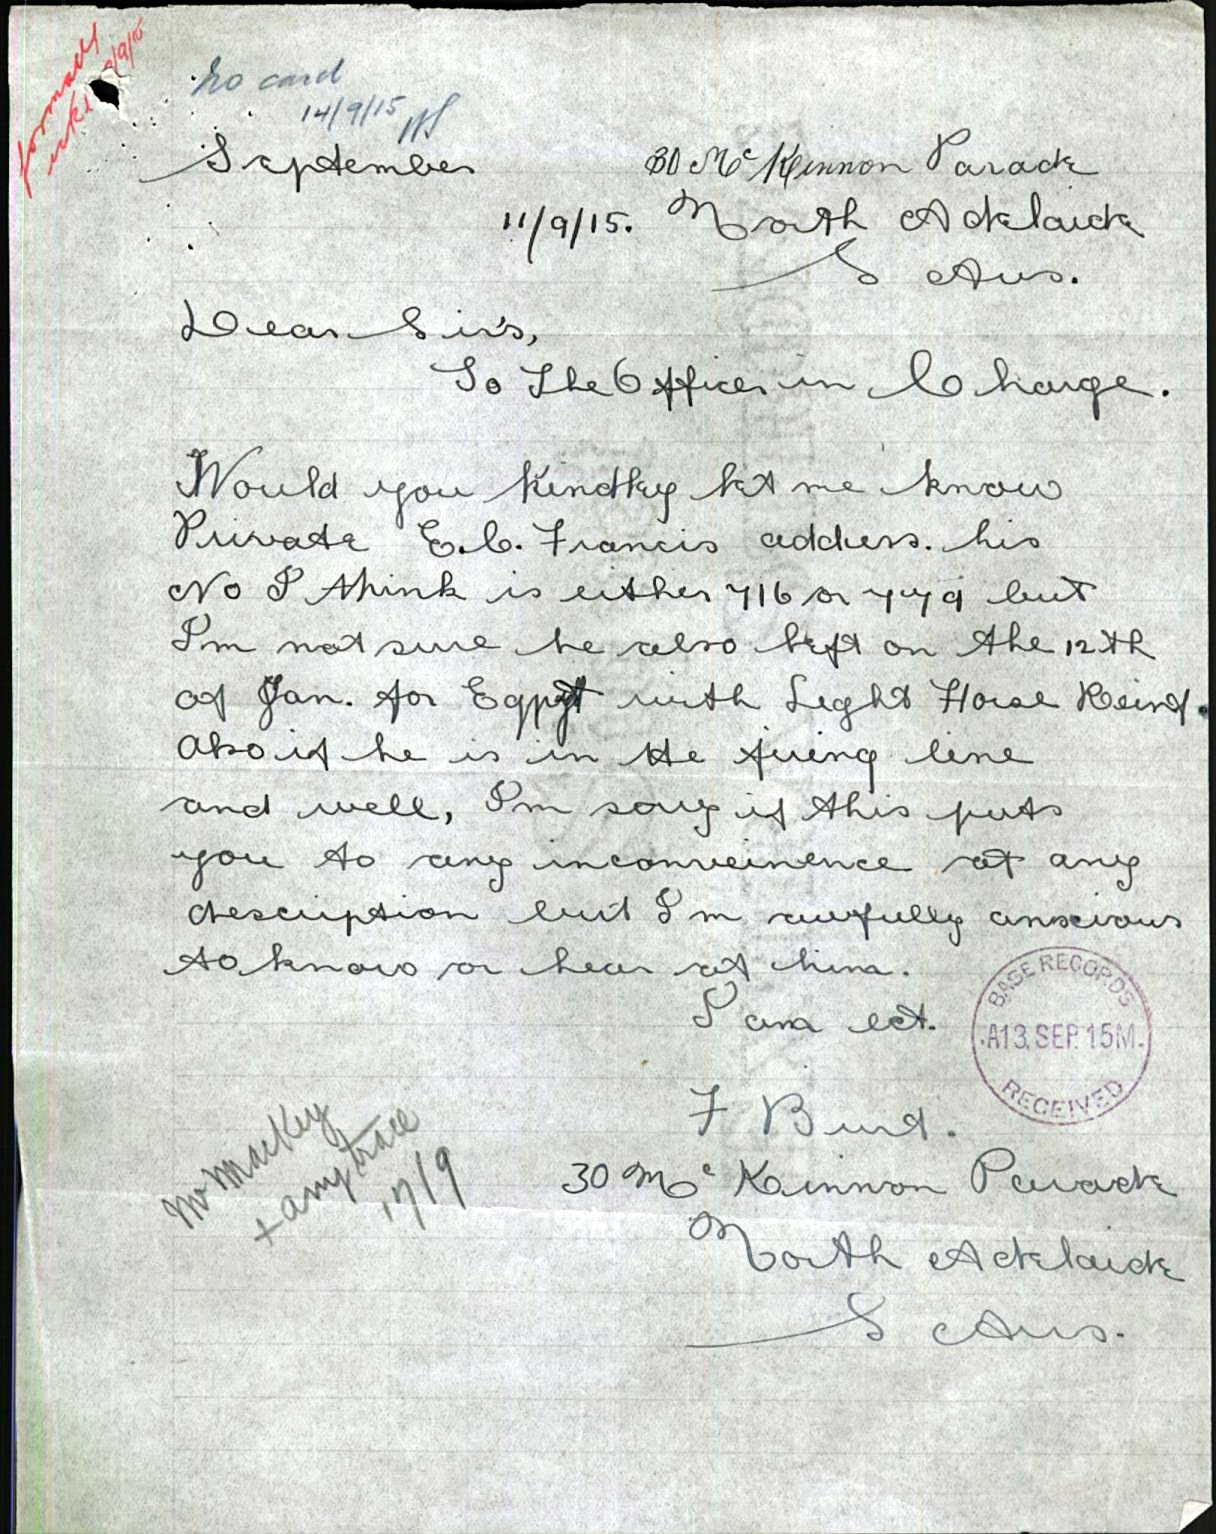 No card
14/9/15
September
30 Mc Kinnon Parade
11/9/15. North Adelaide
S Aus.
Dear Sirs,
To The Officer in Charge.
Would you kindley let me know
Private E.C. Francis address. his
No I think is either 716 or 779 but
I'm not sure he also left on the 12th
of Jan. for Egypt with Light Horse Reinf.
Also if he is in the firing line
and well, I'm sorry if this puts
you to any inconveinence of any
description but I'm awfully anxious
to know or hear of him.
I am ect.
BASE RECORDS
A13 SEP. 15M.
RECEIVED
F Burt.
30 Mc Kinnon Parade
North Adelaide
S Aus.
Mr Mackey
+ any trace
17/9